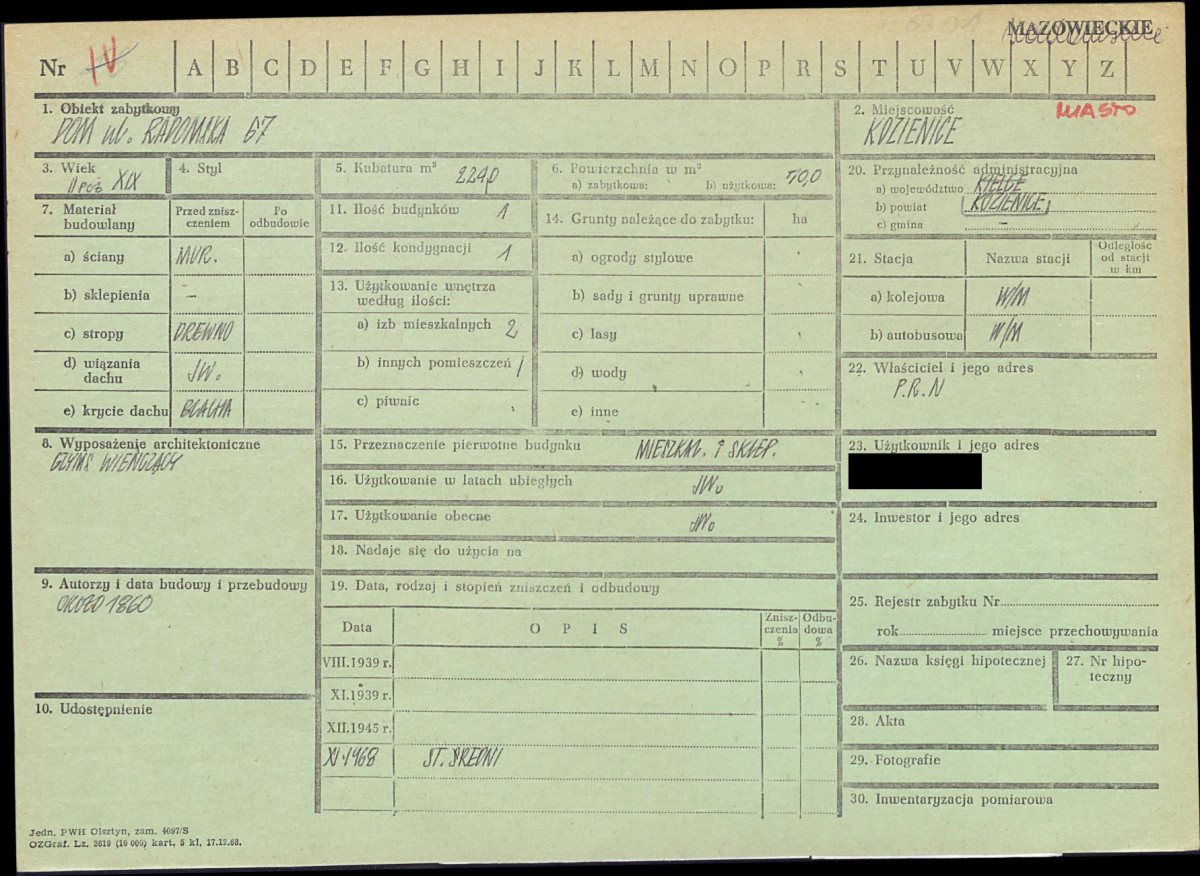 MAZOWIECKIE
Nr IV A B C D E F G H I J K L M N O P R S T U V W X Y Z
1. Obiekt zabytkowy
DOM ul. RADOMSKA 67
2. Miejscowość MIASTO
KOZIENICE
3. Wiek
II poł XIX
4. Styl
5. Kubatura m³ 224,0
6. Powierzchnia w m²
a) zabytkowa: b) użytkowa: 50,0
7. Materiał budowlany
Przed zniszczeniem
Po odbudowie
a) ściany MUR.
b) sklepienia –
c) stropy DREWNO
d) wiązania dachu JW.
e) krycie dachu BLACHA
11. Ilość budynków 1
12. Ilość kondygnacji 1
13. Użytkowanie wnętrza według ilości:
a) izb mieszkalnych 2
b) innych pomieszczeń 1
c) piwnic
14. Grunty należące do zabytku: ha
a) ogrody stylowe
b) sady i grunty uprawne
c) lasy
d) wody
e) inne
20. Przynależność administracyjna
a) województwo KIELCE
b) powiat KOZIENICE
c) gmina –
21. Stacja Nazwa stacji Odległość od stacji w km
a) kolejowa W/M
b) autobusowa W/M
22. Właściciel i jego adres
P.R.N
8. Wyposażenie architektoniczne
GZYMS WIEŃCZĄCY
15. Przeznaczenie pierwotne budynku MIESZKAL. I SKLEP.
16. Użytkowanie w latach ubiegłych JW.
17. Użytkowanie obecne JW.
18. Nadaje się do użycia na
23. Użytkownik i jego adres
24. Inwestor i jego adres
9. Autorzy i data budowy i przebudowy
OKOŁO 1860
10. Udostępnienie
19. Data, rodzaj i stopień zniszczeń i odbudowy
Data OPIS Zniszczenia % Odbudowa %
VIII.1939 r.
XI.1939 r.
XII.1945 r.
XI.1968 ST. ŚREDNI
25. Rejestr zabytku Nr
rok miejsce przechowywania
26. Nazwa księgi hipotecznej
27. Nr hipoteczny
28. Akta
29. Fotografie
30. Inwentaryzacja pomiarowa
Jedn. PWH Olsztyn, zam. 4097/S
OZGraf. Lz. 2619 (10 000) kart. 5 kl. 17.12.68.